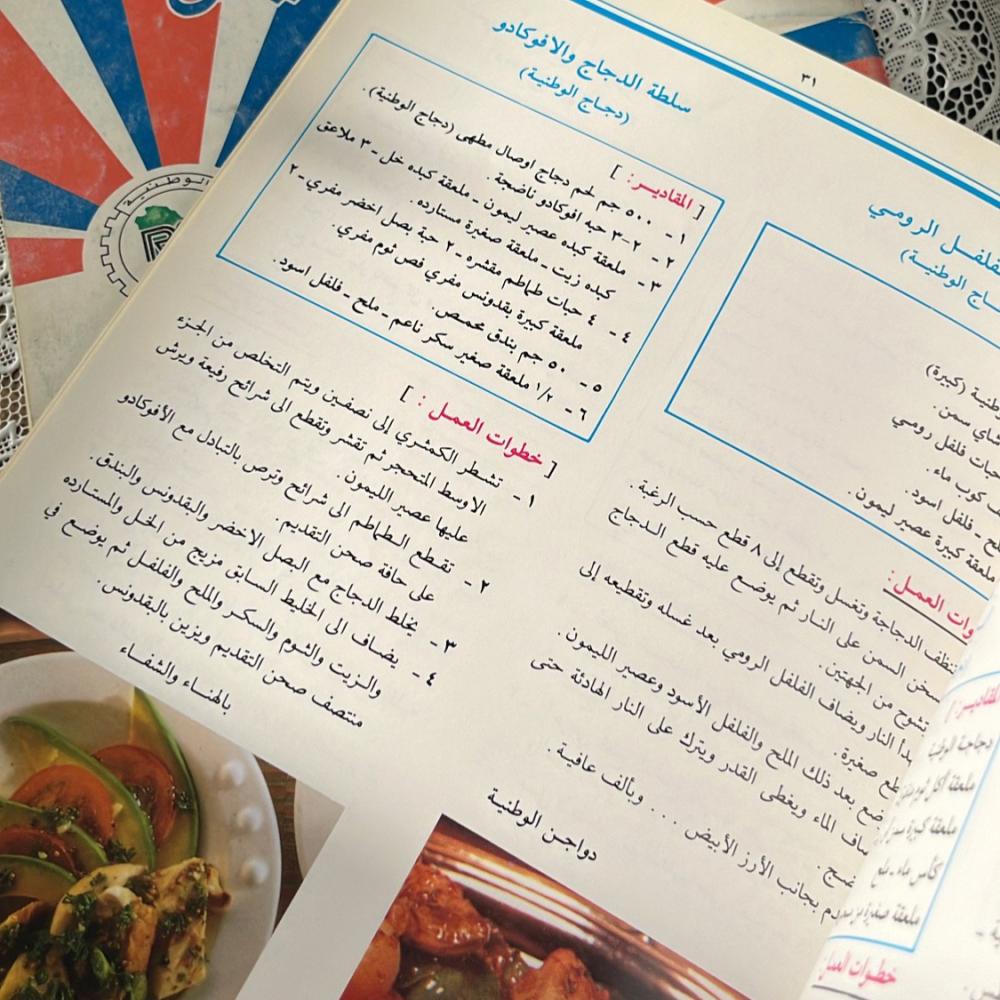 ٣١
سلطة الدجاج والافوكادو
(دجاج الوطنية)
[ المقادير : ]
١ - ٥٠٠ جم لحم دجاج اوصال مطهى (دجاج الوطنية).
٢ - ٢-٣ حبه افوكادو ناضجة.
٣ - ملعقة كبده عصير ليمون - ملعقة كبده خل - ٣ ملاعق
كبده زيت - ملعقة صغيرة مستارده.
٤ - ٤ حبات طماطم مقشره - ٢ حبة بصل اخضر مفري - ٢
ملعقة كبيرة بقدونس مفري فص ثوم مفري.
٥ - ٥٠ جم بندق محمص.
٦ - ١/٢ ملعقة صغير سكر ناعم - ملح - فلفل اسود.
[ خطوات العمل : ]
١ - تشطر الكمشري إلى نصفين ويتم التخلص من الجزء
الاوسط المتحجر ثم تقشر وتقطع الى شرائح رفيعة ويرش
عليها عصير الليمون.
٢ - تقطع الطماطم الى شرائح وترص بالتبادل مع الأفوكادو
على حافة صحن التقديم.
٣ - يخلط الدجاج مع البصل الاخضر والبقدونس والبندق.
٤ - يضاف الى الخليط السابق مزيج من الخل والمستارده
والزيت والثوم والسكر والملح والفلفل ثم يوضع في
منتصف صحن التقديم ويزين بالبقدونس.
بالهناء والشفاء
الرومي
الوطنية)
(كبيرة)
سمن.
حبات فلفل رومي
كوب ماء.
- فلفل اسود.
ملعقة كبيرة عصير ليمون.
العمل :
تنظف الدجاجة وتغسل وتقطع إلى ٨ قطع حسب الرغبة.
السمن على النار ثم يوضع عليه قطع الدجاج
من الجهتين.
النار ويضاف الفلفل الرومي بعد غسله وتقطيعه إلى
صغيرة.
بعد ذلك الملح والفلفل الأسود وعصير الليمون.
الماء ويغطى القدر ويترك على النار الهادئة حتى
بجانب الأرز الأبيض .... وبألف عافية.
دواجن الوطنية
دجاجة الوطنية
ملعقة أكل ثوم
ملعقة كبيرة
كأس ماء - ملح
ملعقة صغيرة
خطوات
الوطنية